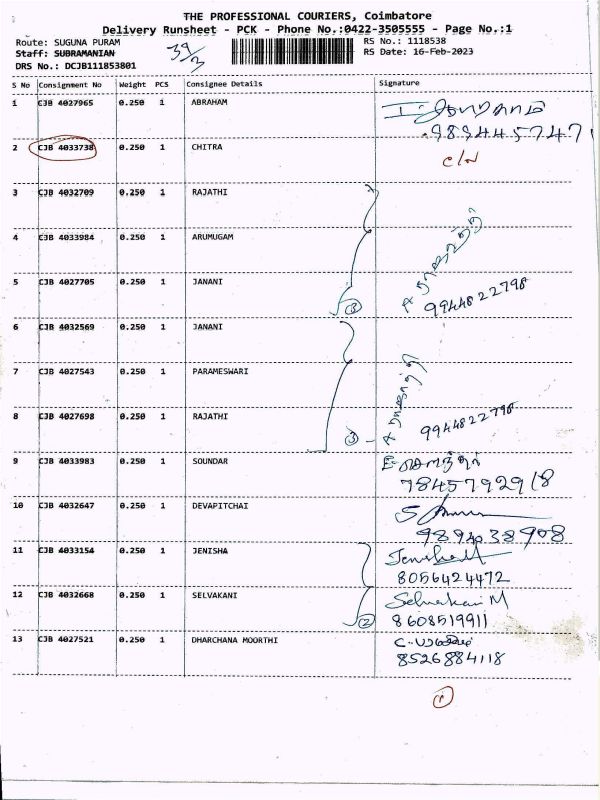 THE PROFESSIONAL COURIERS, Coimbatore
Delivery Runsheet - PCK - Phone No.:0422-3505555 - Page No.:1
Route: SUGUNA PURAM
RS No.: 1118538
Staff: SUBRAMANIAN
RS Date: 16-Feb-2023
DRS No.: DCJB111853801
39/3
S No Consignment No Weight PCS Consignee Details Signature
1 CJB 4027965 0.250 1 ABRAHAM
9894457471
2 CJB 4033738 0.250 1 CHITRA
3 CJB 4032709 0.250 1 RAJATHI
4 CJB 4033984 0.250 1 ARUMUGAM
5 CJB 4027705 0.250 1 JANANI 9944822798
3
6 CJB 4032569 0.250 1 JANANI
7 CJB 4027543 0.250 1 PARAMESWARI
8 CJB 4027698 0.250 1 RAJATHI 9944822798
3
9 CJB 4033983 0.250 1 SOUNDAR
7845792918
10 CJB 4032647 0.250 1 DEVAPITCHAI
9894038908
11 CJB 4033154 0.250 1 JENISHA
8056424472
12 CJB 4032668 0.250 1 SELVAKANI Selvakani M
2 8608519911
13 CJB 4027521 0.250 1 DHARCHANA MOORTHI
8526884118